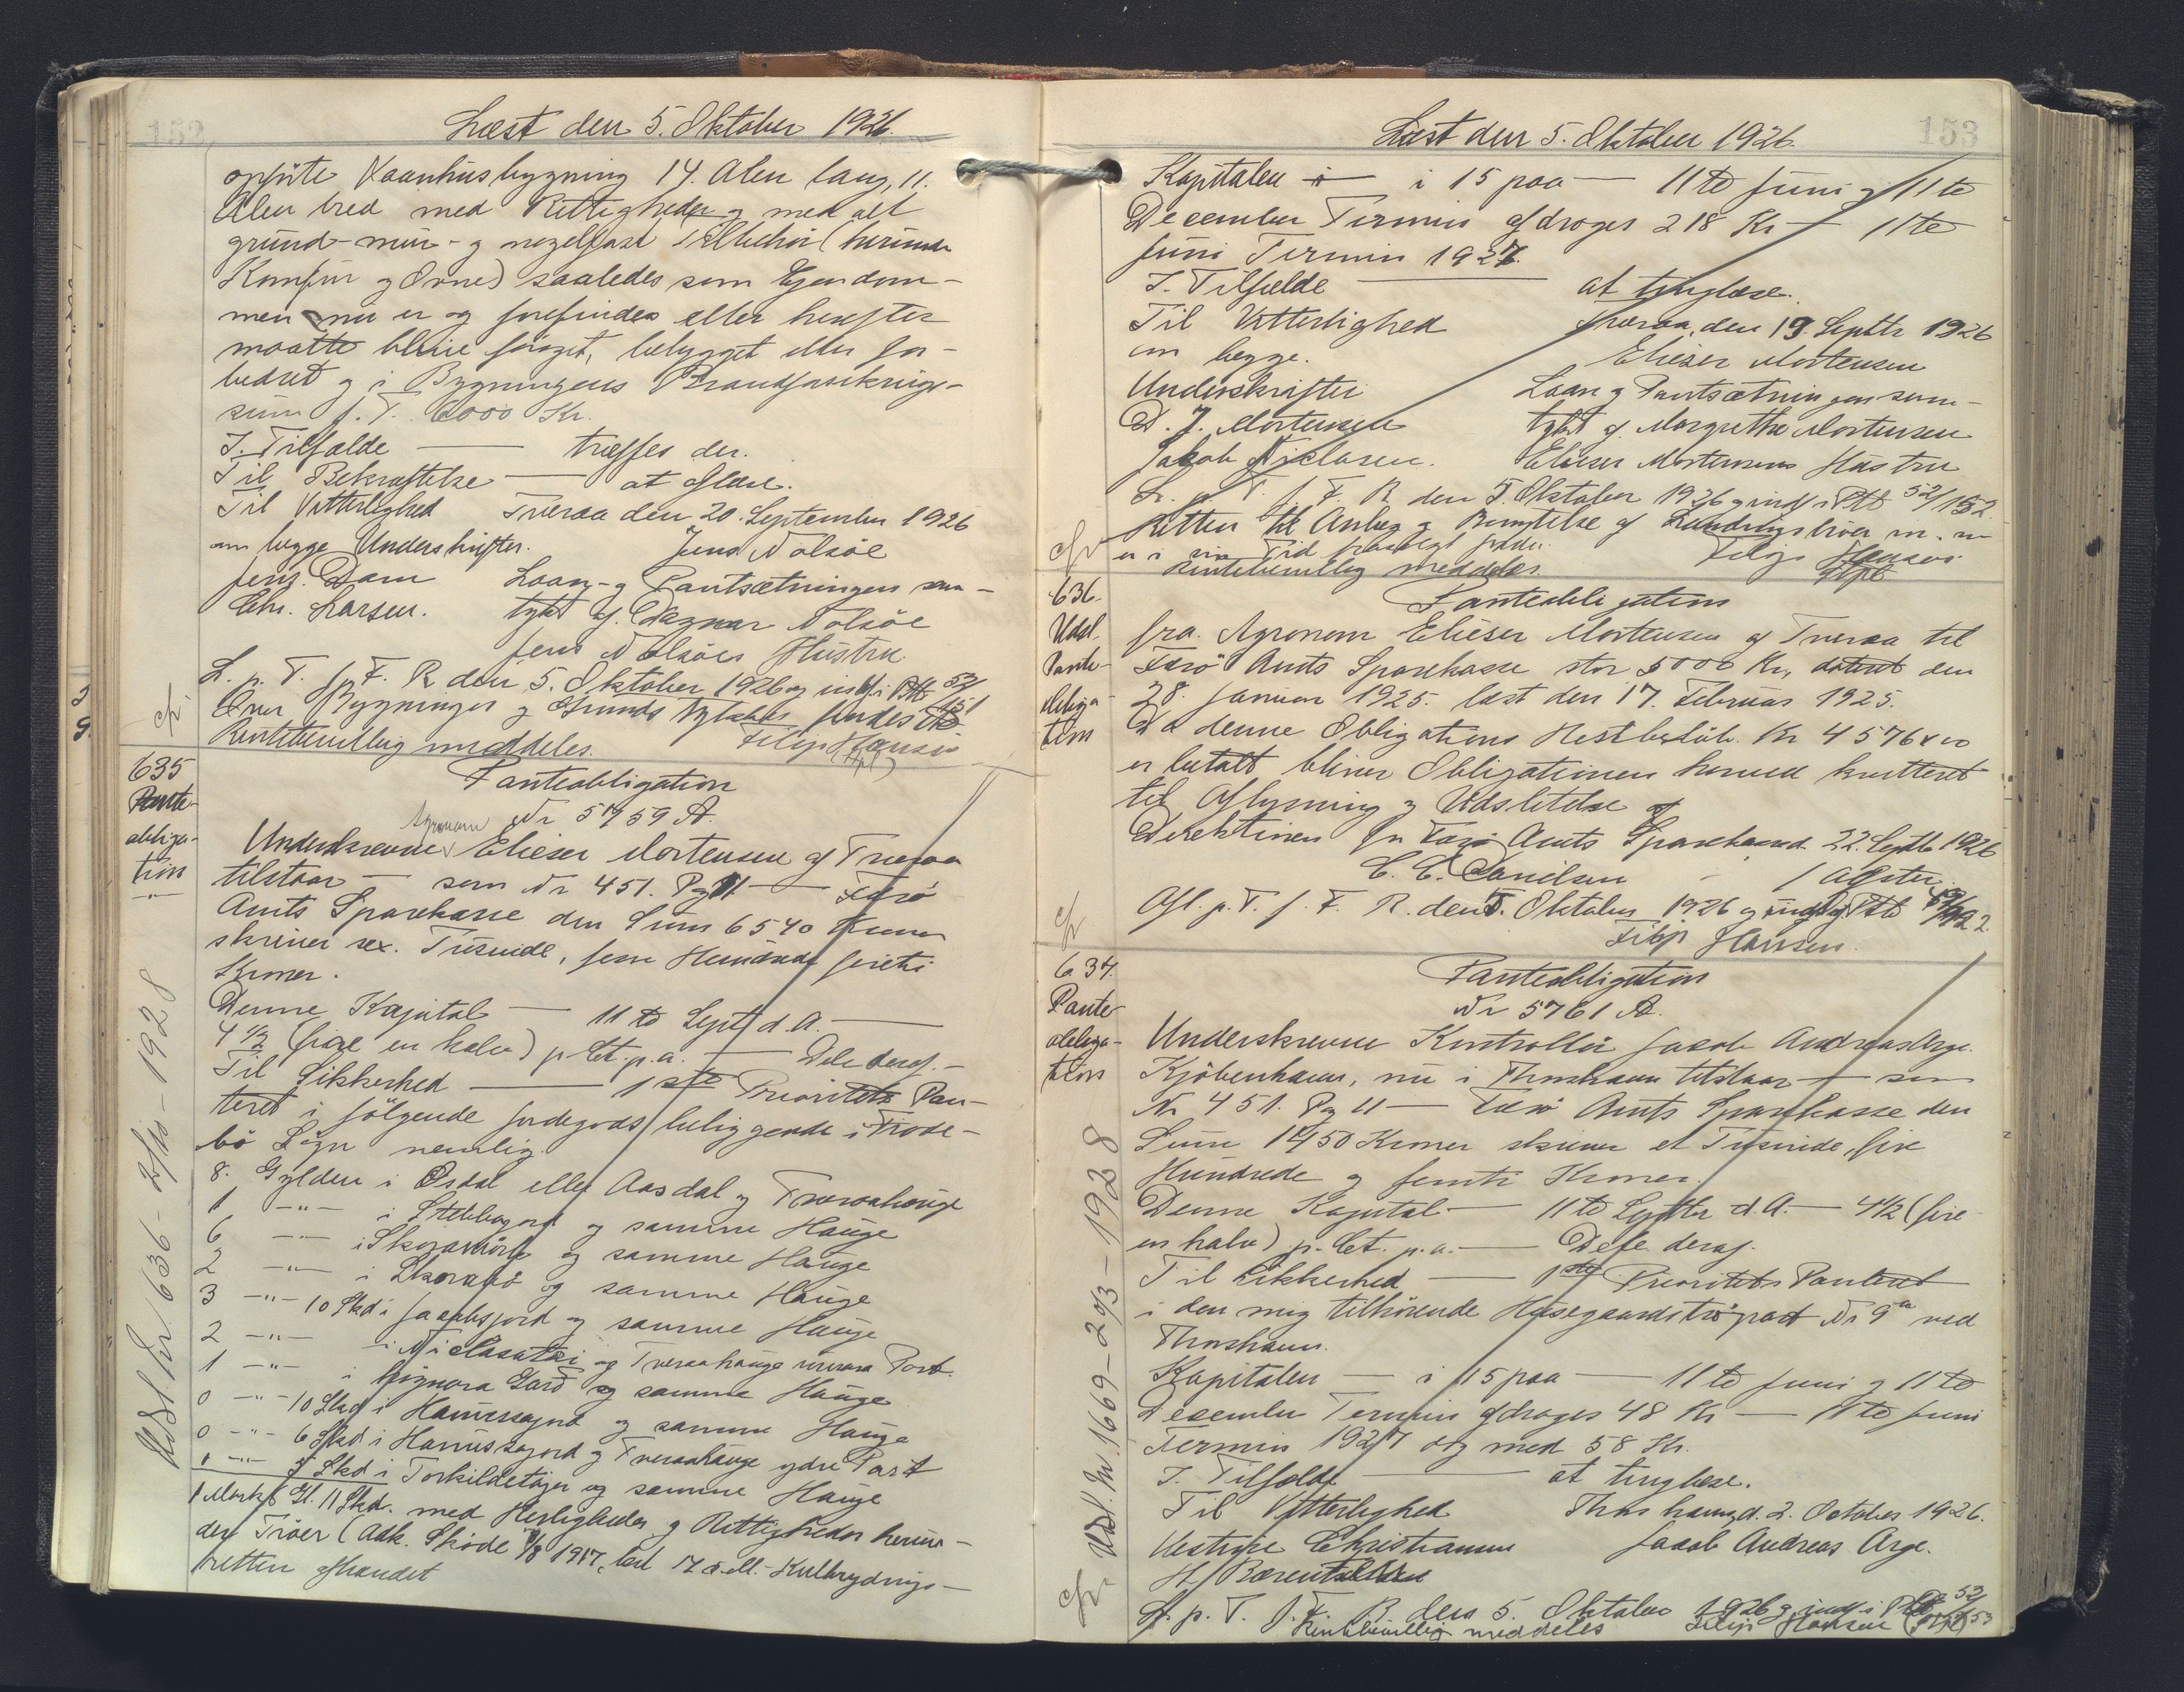 152
Læst den 5. Oktober 1926
opførte Vaanhusbygning 14. Alen lang, 11.
Alen bred med Rettigheder og med alt
grund- mur- og nagelfast Tilbehör (herunder
Komfur og Ovne) saaledes som Ejendom-
men nu er og forefindes eller herefter
maatte blive foröget, bebygget eller for-
bedret og i Bygningens Brandforsikrings-
sum p. T. 6000 Kr.
I. Tilfælde — træffes der.
Til Bekræftelse — at aflæse.
Til Vitterlighed Tveraa den 20. September 1926
om begge Underskrifter. Jens Nolsöe
Jens. Dam Laan- og Pantsætningen sam-
Chr. Larsen. tykt af Dagmar Nolsöe
Jens Nolsöes Hustru.
L. p. T. f. F. R den 5. Oktober 1926 og indf. i Ptb 52/151
Over Bygninger og Grunds
Rentebevilling meddeles. Filip Hansen
635
Pante-
obliga-
tion
Panteobligation
Nr 5759 A.
Underskrevne Agronom Elieser Mortensen af Tveraa
tilstaar — som Nr 451. Pg 11 — Færö
Amts Sparekasse den Sum 6540 Kroner
skriver sex. Tusinde, fem Hundrede fireti
Kroner.
Denne Kapital — 11te Sept d.A. —
4 1/2 (fire en halv) p Ct. p.a. — Dele deraf. —
Til Sikkerhed — 1ste Prioritets Pan-
teret i fölgende Jordegods beliggende i Frode-
bö Sogn nemlig.
8. Gylden i Ørdal eller Aasdal og Tveraahauge
1 -"- i Stebbagord og samme Hauge
6 -"- i Skoranöre og samme Hauge
2 -"- i Skorabö og samme Hauge
3 -"- 10 Skd i Jacobsjord og samme Hauge
2 -"- i Niclasatoi og Tveraahauge Part
1 -"- i Gard og samme Hauge
0 -"- 10 Skd i Hanussagord og samme Hauge
0 -"- 6 Skd i Hanussagord og Tveraahauge ydre Part
0 -"- 7 Skd i Torkildetöjer og samme Hauge
1 Mark 8 Gl. 11 Skd. med Herligheder og Rettigheder herun-
der Tröer (Adk. Sköde 1917, læst 17 s. M. - Kulbrydnings-
retten afhændet
Udsl. Nr 636 - 2/10 - 1928
153
Læst den 5. Oktober 1926.
Kapitalen — i 15 paa — 11te Juni og 11te
December Termin afdrages 218 Kr — 11te
Juni Termin 1927.
I. Tilfælde — at tinglæse.
Til Vitterlighed Tveraa, den 19 Septbr 1926
om begge. Elieser Mortensen
Underskrifter Laan og Pantsætningen sam-
D. J. Mortensen tykt af Margrethe Mortensen
Jakob Niclasen. Elieser Mortensens Hustru
L. p. T. f. F. R den 5. Oktober 1926 og indf. i Ptb 52/152
Retten til Anlæg og Benyttelse af m. m
er i sin Tid Filip Hansen
Rentebevilling meddeles.
636.
Udsl.
Pante-
obliga-
tion
Panteobligation
fra. Agronom Elieser Mortensen af Tveraa til
Færö Amts Sparekasse stor 5000 Kr, dateret den
28. Januar 1925. læst den 17. Februar 1925.
Da denne Obligations Restbelöb Kr 4576
er betalt bliver Obligationen herved kvitteret
til Aflysning og Udslettelse af
Direktionen for Færö Amts Sparekasse d. 22 Septb 1926
C. C. Danielsen
Afl. p. T. f. F. R. den 5. Oktober 1926 og indf. i Ptb
Filip Hansen.
637.
Pante-
obliga-
tion
Panteobligation
Nr 5761 A.
Underskrevne Kontrollör Jacob Andreas Arge.
Kjöbenhavn, nu i Thorshavn tilstaar — som
Nr 451. Pg 11 — Færö Amts Sparekasse den
Sum 1450 Kroner skriver et Tusinde, fire
Hundrede og femti Kroner.
Denne Kapital — 11te Septbr d.A. — 4 1/2 (fire
en halv) p. Ct. p.a. — Dele deraf.
Til Sikkerhed — 1ste Prioritets Panteret
i den mig tilhörende Husegaardströpart Nr 9a ved
Thorshavn.
Kapitalen — i 15 paa — 11te Juni og 11te
December Termin afdrages 48 Kr — 11te Juni
Termin 1927 dog med 58 Kr.
I. Tilfælde — at tinglæse.
Til Vitterlighed Thorshavn, d. 2. October 1926.
Christiansen Jacob Andreas Arge.
H. Bærentsen
L. p. T. f. F. R den 5. Oktober 1926 og indf. i Ptb 52/153
Rentebevilling meddeles Filip Hansen
Udsl. Nr. 1669 - 2/3 - 1928